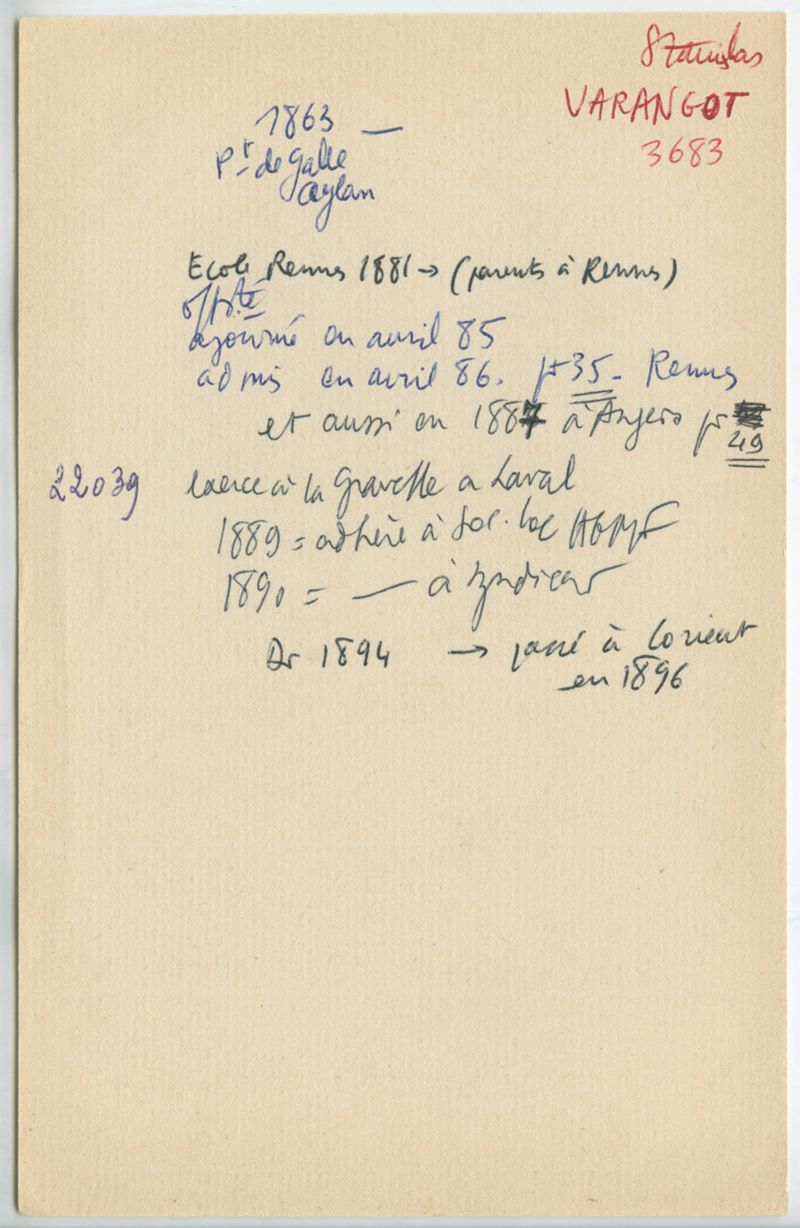 Stanislas
VARANGOT
3683
1863 —
Pt de Galle
Ceylan
Ecole Rennes 1881 → (parents à Rennes)
off. sté
ajourné en avril 85
admis en avril 86. pr 35 - Rennes
et aussi en 1887 à Angers pr
49
22039
exerce à la Gravelle à Laval
1889 = adhère à Soc. loc
1890 = — à Syndicat
Dr 1894 → passé à Lorient
en 1896